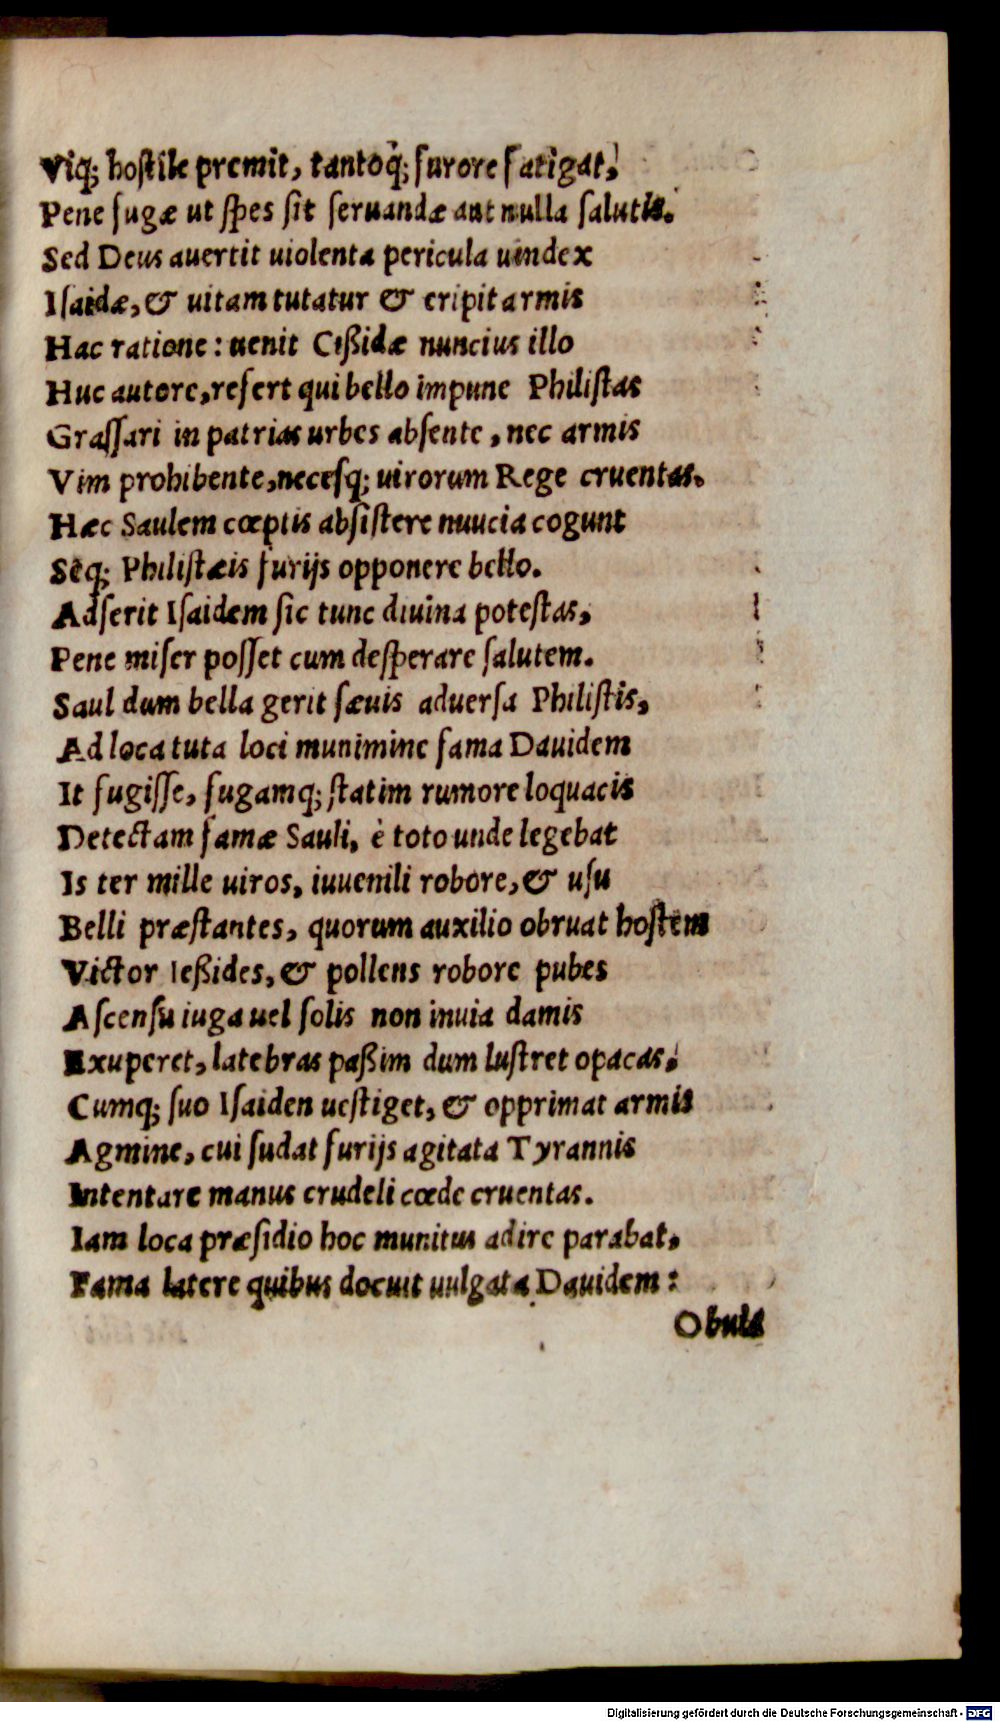 Viq; hostile premit, tantoq́; furore fatigat,
Pene fugæ ut spes sit seruandæ aut nulla salutis.
Sed Deus auertit uiolenta pericula uindex
Isaidæ, & uitam tutatur & eripit armis
Hac ratione: uenit Cißidæ nuncius illo
Huc autore, refert qui bello impune Philistas
Grassari in patrias urbes absente, nec armis
Vim prohibente, necesq; uirorum Rege cruentas.
Hæc Saulem cœptis absistere nuucia cogunt
Seq; Philistæis furijs opponere bello.
Adserit Isaidem sic tunc diuina potestas,
Pene miser posset cum desperare salutem.
Saul dum bella gerit sæuis aduersa Philistis,
Ad loca tuta loci munimine fama Dauidem
It fugisse, fugamq; statim rumore loquacis
Detectam famæ Sauli, è toto unde legebat
Is ter mille uiros, iuuenili robore, & usu
Belli præstantes, quorum auxilio obruat hostem
Victor Ießides, & pollens robore pubes
Ascensu iuga uel solis non inuia damis
Exuperet, latebras paßim dum lustret opacas,
Cumq; suo Isaiden uestiget, & opprimat armis
Agmine, cui sudat furijs agitata Tyrannis
Intentare manus crudeli cœde cruentas.
Iam loca præsidio hoc munitus adire parabat,
Fama latere quibus docuit uulgata Dauidem:
Obuia
Digitalisierung gefördert durch die Deutsche Forschungsgemeinschaft - DFG